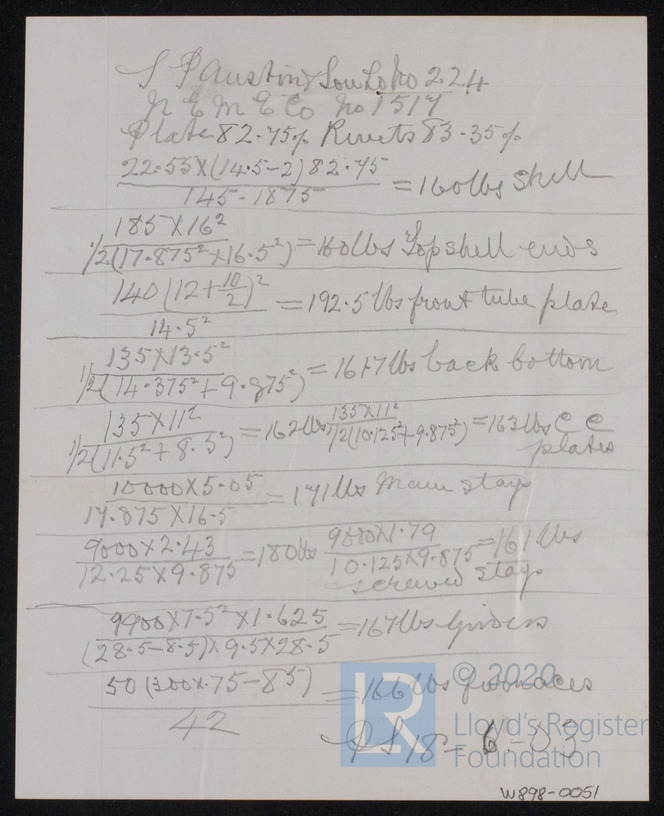 S P Austin & Son Ld No 224
N E M E Co No 1517
Plate 82.75% Rivets 83.35%
22.55×(14.5-2)82.75
145.1875 = 160lbs Shell
185×16²
1/2(17.875²×16.5²) = 160lbs Top shell ends
140(12+10/2)²
14.5² = 192.5 lbs front tube plate
135×13.5²
1/2(14.375²+9.875²) = 161.7 lbs back bottom
135×11²
1/2(11.5²+8.5²) = 162 lbs 135×11² 1/2(10.125²+9.875²) = 163 lbs C C
plates
10000×5.05
17.875×16.5 = 171 lbs Main stays
9000×2.43
12.25×9.875 = 180lbs 9000×1.79 10.125×9.875 = 161 lbs
screwed stays
9900×7.5²×1.625
(28.5-8.5)×9.5×28.5 = 167 lbs Girders
50(300×.75-85) = 166 lbs furnaces
42
18-6-03
© 2020
LR
Lloyd's Register
Foundation
W898-0051